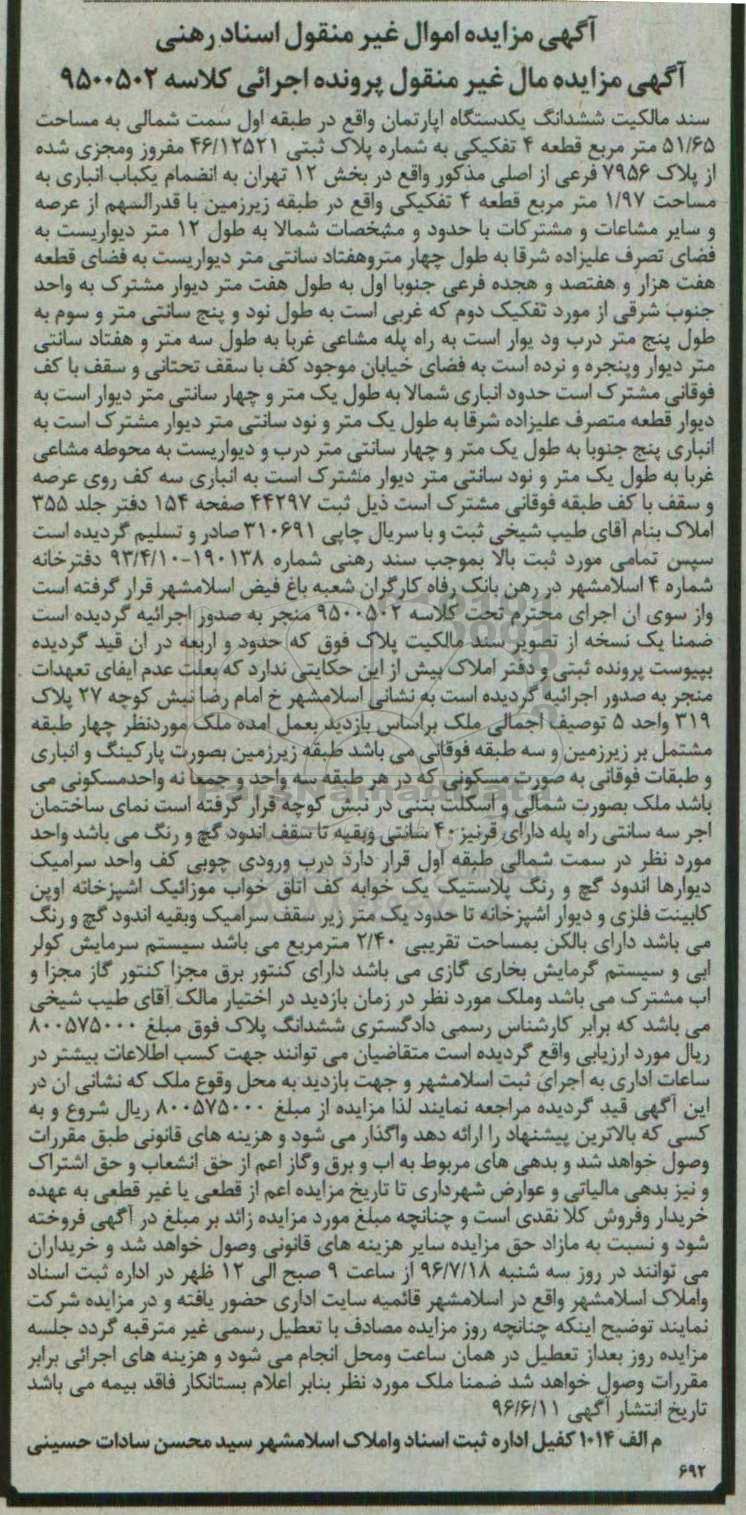 آگهی مزایده اموال غیر منقول اسناد رهنی
آگهی مزایده مال غیر منقول پرونده اجرائی کلاسه ۹۵۰۰۵۰۲
سند مالکیت ششدانگ یکدستگاه اپارتمان واقع در طبقه اول سمت شمالی به مساحت
۵۱/۶۵ متر مربع قطعه ۴ تفکیکی به شماره پلاک ثبتی ۴۶/۱۲۵۲۱ مفروز ومجزی شده
از پلاک ۷۹۵۶ فرعی از اصلی مذکور واقع در بخش ۱۲ تهران به انضمام یکباب انباری به
مساحت ۱/۹۷ متر مربع قطعه ۴ تفکیکی واقع در طبقه زیرزمین با قدرالسهم از عرصه
و سایر مشاعات و مشترکات با حدود و مشخصات شمالا به طول ۱۲ متر دیواریست به
فضای تصرف علیزاده شرقا به طول چهار متروهفتاد سانتی متر دیواریست به فضای قطعه
هفت هزار و هفتصد و هجده فرعی جنوبا اول به طول هفت متر دیوار مشترک به واحد
جنوب شرقی از مورد تفکیک دوم که غربی است به طول نود و پنج سانتی متر و سوم به
طول پنج متر درب ود یوار است به راه پله مشاعی غربا به طول سه متر و هفتاد سانتی
متر دیوار وپنجره و نرده است به فضای خیابان موجود کف با سقف تحتانی و سقف با کف
فوقانی مشترک است حدود انباری شمالا به طول یک متر و چهار سانتی متر دیوار است به
دیوار قطعه متصرف علیزاده شرقا به طول یک متر و نود سانتی متر دیوار مشترک است به
انباری پنج جنوبا به طول یک متر و چهار سانتی متر درب و دیواریست به محوطه مشاعی
غربا به طول یک متر و نود سانتی متر دیوار مشترک است به انباری سه کف روی عرصه
و سقف با کف طبقه فوقانی مشترک است ذیل ثبت ۴۴۲۹۷ صفحه ۱۵۴ دفتر جلد ۳۵۵
املاک بنام آقای طیب شیخی ثبت و با سریال چاپی ۳۱۰۶۹۱ صادر و تسلیم گردیده است
سپس تمامی مورد ثبت بالا بموجب سند رهنی شماره ۱۹۰۱۳۸-۹۳/۴/۱۰ دفترخانه
شماره ۴ اسلامشهر در رهن بانک رفاه کارگران شعبه باغ فیض اسلامشهر قرار گرفته است
واز سوی ان اجرای محترم تحت کلاسه ۹۵۰۰۵۰۲ منجر به صدور اجرائیه گردیده است
ضمنا یک نسخه از تصویر سند مالکیت پلاک فوق که حدود و اربعه در ان قید گردیده
بپیوست پرونده ثبتی و دفتر املاک بیش از این حکایتی ندارد که بعلت عدم ایفای تعهدات
منجر به صدور اجرائیه گردیده است به نشانی اسلامشهر خ امام رضا نبش کوچه ۲۷ پلاک
۳۱۹ واحد ۵ توصیف اجمالی ملک براساس بازدید بعمل امده ملک موردنظر چهار طبقه
مشتمل بر زیرزمین و سه طبقه فوقانی می باشد طبقه زیرزمین بصورت پارکینگ و انباری
و طبقات فوقانی به صورت مسکونی که در هر طبقه سه واحد و جمعا نه واحدمسکونی می
باشد ملک بصورت شمالی و اسکلت بتنی در نبش کوچه قرار گرفته است نمای ساختمان
اجر سه سانتی راه پله دارای قرنیز ۴۰ سانتی وبقیه تا سقف اندود گچ و رنگ می باشد واحد
مورد نظر در سمت شمالی طبقه اول قرار دارد درب ورودی چوبی کف واحد سرامیک
دیوارها اندود گچ و رنگ پلاستیک یک خوابه کف اتاق خواب موزائیک اشپزخانه اوپن
کابینت فلزی و دیوار اشپزخانه تا حدود یک متر زیر سقف سرامیک وبقیه اندود گچ و رنگ
می باشد دارای بالکن بمساحت تقریبی ۲/۴۰ مترمربع می باشد سیستم سرمایش کولر
ابی و سیستم گرمایش بخاری گازی می باشد دارای کنتور برق مجزا کنتور گاز مجزا و
اب مشترک می باشد وملک مورد نظر در زمان بازدید در اختیار مالک آقای طیب شیخی
می باشد که برابر کارشناس رسمی دادگستری ششدانگ پلاک فوق مبلغ ۸۰۰۵۷۵۰۰۰
ریال مورد ارزیابی واقع گردیده است متقاضیان می توانند جهت کسب اطلاعات بیشتر در
ساعات اداری به اجرای ثبت اسلامشهر و جهت بازدید به محل وقوع ملک که نشانی ان در
این آگهی قید گردیده مراجعه نمایند لذا مزایده از مبلغ ۸۰۰۵۷۵۰۰۰ ریال شروع و به
کسی که بالاترین پیشنهاد را ارائه دهد واگذار می شود و هزینه های قانونی طبق مقررات
وصول خواهد شد و بدهی های مربوط به اب و برق وگاز اعم از حق انشعاب و حق اشتراک
و نیز بدهی مالیاتی و عوارض شهرداری تا تاریخ مزایده اعم از قطعی یا غیر قطعی به عهده
خریدار وفروش کلا نقدی است و چنانچه مبلغ مورد مزایده زائد بر مبلغ در آگهی فروخته
شود و نسبت به مازاد حق مزایده سایر هزینه های قانونی وصول خواهد شد و خریداران
می توانند در روز سه شنبه ۹۶/۷/۱۸ از ساعت ۹ صبح الی ۱۲ ظهر در اداره ثبت اسناد
واملاک اسلامشهر واقع در اسلامشهر قائمیه سایت اداری حضور یافته و در مزایده شرکت
نمایند توضیح اینکه چنانچه روز مزایده مصادف با تعطیل رسمی غیر مترقبه گردد جلسه
مزایده روز بعداز تعطیل در همان ساعت ومحل انجام می شود و هزینه های اجرائی برابر
مقررات وصول خواهد شد ضمنا ملک مورد نظر بنابر اعلام بستانکار فاقد بیمه می باشد
تاریخ انتشار آگهی ۹۶/۶/۱۱
م الف ۱۰۱۴ کفیل اداره ثبت اسناد واملاک اسلامشهر سید محسن سادات حسینی
۶۹۲